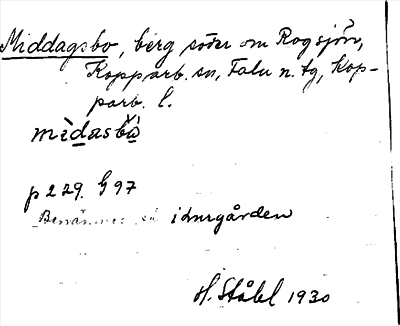 Middagsbo, berg söder om Rogsjön,
Kopparb. sn, Falu n. tg, Kop-
parb. l.
mìdasbǻ
p 229. G 97
idurgården
H. Ståhl 1930